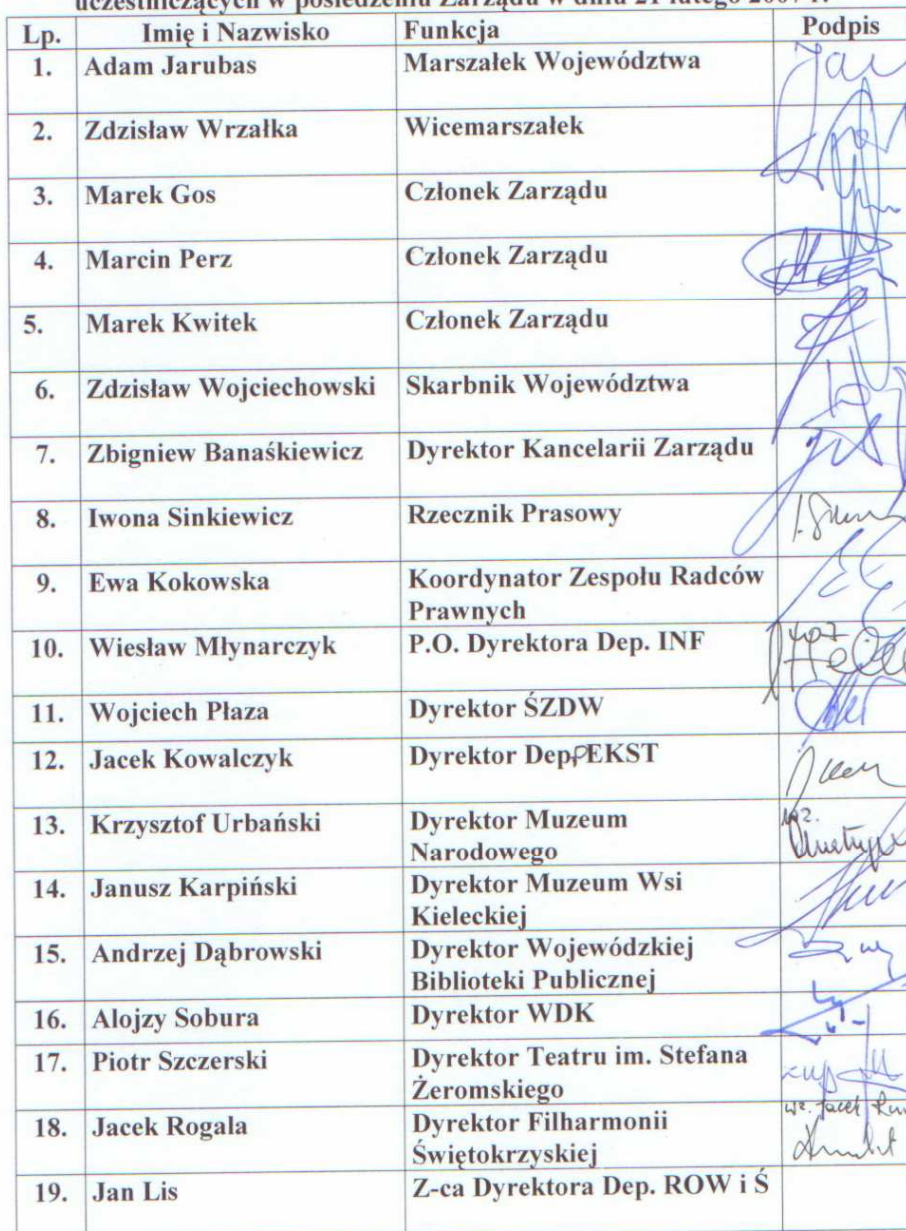 uczestniczących w posiedzeniu Zarządu w dniu 21 lutego 2007 r.
Lp. Imię i Nazwisko Funkcja Podpis
1. Adam Jarubas Marszałek Województwa
2. Zdzisław Wrzałka Wicemarszałek
3. Marek Gos Członek Zarządu
4. Marcin Perz Członek Zarządu
5. Marek Kwitek Członek Zarządu
6. Zdzisław Wojciechowski Skarbnik Województwa
7. Zbigniew Banaśkiewicz Dyrektor Kancelarii Zarządu
8. Iwona Sinkiewicz Rzecznik Prasowy
9. Ewa Kokowska Koordynator Zespołu Radców
Prawnych
10. Wiesław Młynarczyk P.O. Dyrektora Dep. INF
11. Wojciech Płaza Dyrektor ŚZDW
12. Jacek Kowalczyk Dyrektor Dep.PEKST
13. Krzysztof Urbański Dyrektor Muzeum wz.
Narodowego
14. Janusz Karpiński Dyrektor Muzeum Wsi
Kieleckiej
15. Andrzej Dąbrowski Dyrektor Wojewódzkiej
Biblioteki Publicznej
16. Alojzy Sobura Dyrektor WDK
17. Piotr Szczerski Dyrektor Teatru im. Stefana
Żeromskiego
18. Jacek Rogala Dyrektor Filharmonii wz. Jacek
Świętokrzyskiej
19. Jan Lis Z-ca Dyrektora Dep. ROW i Ś